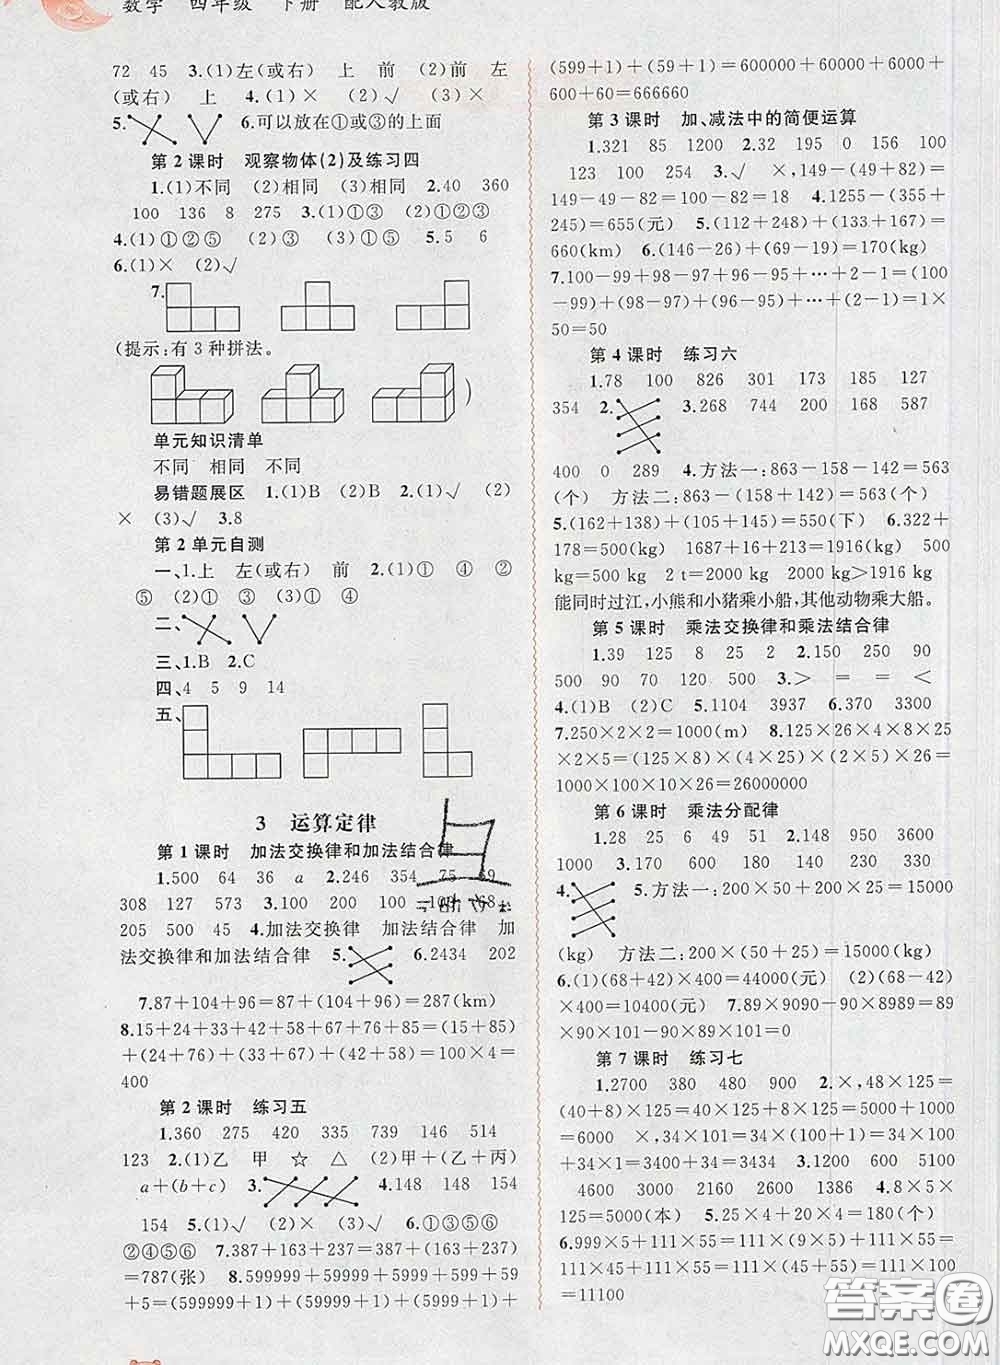 数学 四年级 下册 配人教版
72 45 3.(1)左(或右) 上 前 (2)前 左
(或右) 上 4.(1)× (2)√ (3)×
5. 6.可以放在①或③的上面
第2课时 观察物体(2)及练习四
1.(1)不同 (2)相同 (3)相同 2.40 360
100 136 8 275 3.(1)①③ (2)①②③
4.(1)①②⑤ (2)③ (3)①④ 5.5 6
6.(1)× (2)√
7.
(提示:有3种拼法。
)
单元知识清单
不同 相同 不同
易错题展区 1.(1)B (2)B 2.(1)√ (2)
× (3)√ 3.8
第2单元自测
一、1.上 左(或右) 前 2.(1)① ④ ②
⑤ (2)④ ② ⑤ (3)① ④
二、
三、1.B 2.C
四、4 5 9 14
五、
3 运算定律
第1课时 加法交换律和加法结合律
1.500 64 36 a 2.246 354 75 69
308 127 573 3.200 100 100 168
205 500 45 4.加法交换律 加法结合律 加
法交换律和加法结合律 5. 6.2434 202
7.87+104+96=87+(104+96)=287(km)
8.15+24+33+42+58+67+76+85=(15+85)
+(24+76)+(33+67)+(42+58)=100×4=
400
第2课时 练习五
1.360 275 420 335 739 146 514
123 2.(1)乙 甲 ☆ △ (2)甲+(乙+丙)
a+(b+c) 3. 4.148 148 154
154 5.(1)√ (2)× (3)√ 6.①③⑤⑥
②④⑤⑥ 7.387+163+237=387+(163+237)
=787(张) 8.599999+59999+5999+599+59
+5=(599999+1)+(59999+1)+(5999+1)+
(599+1)+(59+1)=600000+60000+6000+
600+60=666660
第3课时 加、减法中的简便运算
1.321 85 1200 2.32 195 0 156 100
123 100 254 3.√ ×,149-(49+82)=
149-49-82=100-82=18 4.1255-(355+
245)=655(元) 5.(112+248)+(133+167)=
660(km) 6.(146-26)+(69-19)=170(kg)
7.100-99+98-97+96-95+…+2-1=(100
-99)+(98-97)+(96-95)+…+(2-1)=1×
50=50
第4课时 练习六
1.78 100 826 301 173 185 127
354 2. 3.268 744 200 168 587
400 0 289 4.方法一:863-158-142=563
(个) 方法二:863-(158+142)=563(个)
5.(162+138)+(105+145)=550(下) 6.322+
178=500(kg) 1687+16+213=1916(kg) 500
kg=500 kg 2 t=2000 kg 2000 kg>1916 kg
能同时过江,小熊和小猪乘小船,其他动物乘大船。
第5课时 乘法交换律和乘法结合律
1.39 125 8 25 2 2.150 250 90
500 90 70 120 500 3.> = = <
4.(1)B (2)C 5.1104 3937 6.370 3300
7.250×2×2=1000(m) 8.125×26×4×8×25
×2×5=(125×8)×(4×25)×(2×5)×26=
1000×100×10×26=26000000
第6课时 乘法分配律
1.28 25 6 49 51 2.148 950 3600
1000 3.170 100 4200 4300 8900
4. 5.方法一:200×50+200×25=15000
(kg) 方法二:200×(50+25)=15000(kg)
6.(1)(68+42)×400=44000(元) (2)(68-42)
×400=10400(元) 7.89×9090-90×8989=89
×90×101-90×89×101=0
第7课时 练习七
1.2700 380 480 900 2.×,48×125=
(40+8)×125=40×125+8×125=5000+1000
=6000 ×,34×101=34×(100+1)=34×100
+34×1=3400+34=3434 3.4500 6300
4600 3000 2600 1386 4.8×5×
125=5000(本) 5.25×4+20×4=180(个)
6.999×5+111×55=111×(9×5)+111×55=
111×45+111×55=111×(45+55)=111×100=
11100
答案圈
MXQE.COM